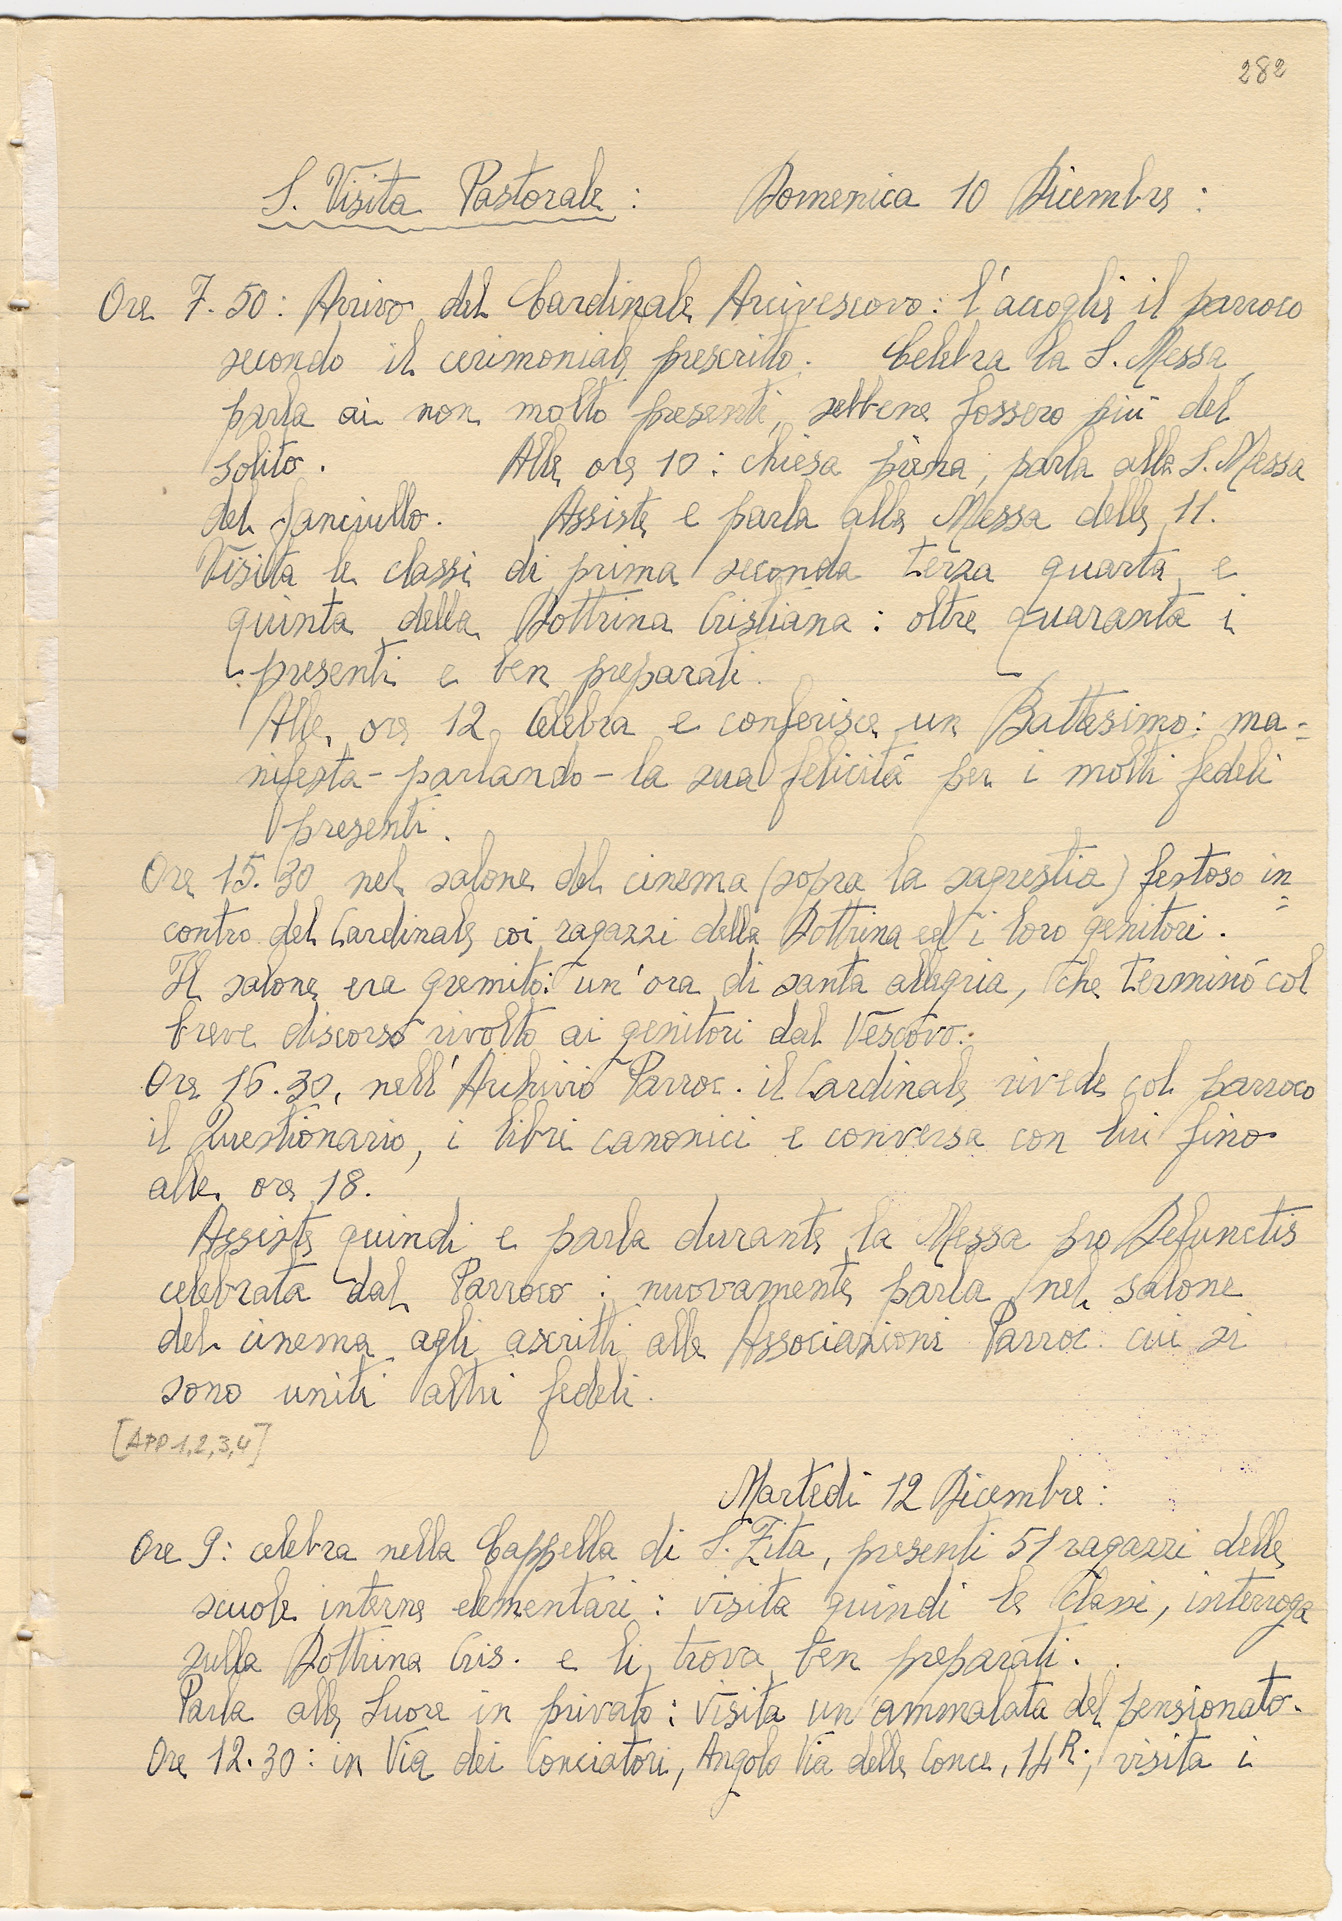 282
S. Visita Pastorale : Domenica 10 Dicembre :
Ore 7.50 : Arrivo del Cardinale Arcivescovo : l'accoglie il parroco
secondo il cerimoniale prescritto. Celebra la S. Messa
parla ai non molto presenti, sebbene fossero più del
solito. Alle ore 10 : chiesa piena, parla alla S. Messa
del fanciullo. Assiste e parla alla Messa delle 11.
Visita le classi di prima seconda terza quarta e
quinta della Dottrina Cristiana : oltre quaranta i
presenti e ben preparati.
Alle ore 12 Celebra e conferisce un Battesimo : ma=
nifesta - parlando - la sua felicità per i molti fedeli
presenti.
Ore 15.30 nel salone del cinema (sopra la sagrestia) festoso in=
contro del Cardinale coi ragazzi della Dottrina ed i loro genitori.
Il salone era gremito : un'ora di santa allegria, che terminò col
breve discorso rivolto ai genitori dal Vescovo.
Ore 16.30, nell'Archivio Parroc. il Cardinale rivede col parroco
il Questionario, i libri canonici e conversa con lui fino
alle ore 18.
Assiste quindi e parla durante la Messa pro Defunctis
celebrata dal Parroco : nuovamente parla nel salone
del cinema agli ascritti alle Associazioni Parroc. cui si
sono uniti altri fedeli.
[APP 1,2,3,4]
Martedì 12 Dicembre :
Ore 9 : celebra nella Cappella di S. Zita, presenti 51 ragazzi delle
scuole interne elementari : visita quindi le classi, interroga
sulla Dottrina Cris. e li trova ben preparati.
Parla alle Suore in privato : visita un'ammalata del pensionato.
Ore 12.30 : in Via dei Conciatori, Angolo Via delle Conce, 14 R., visita i